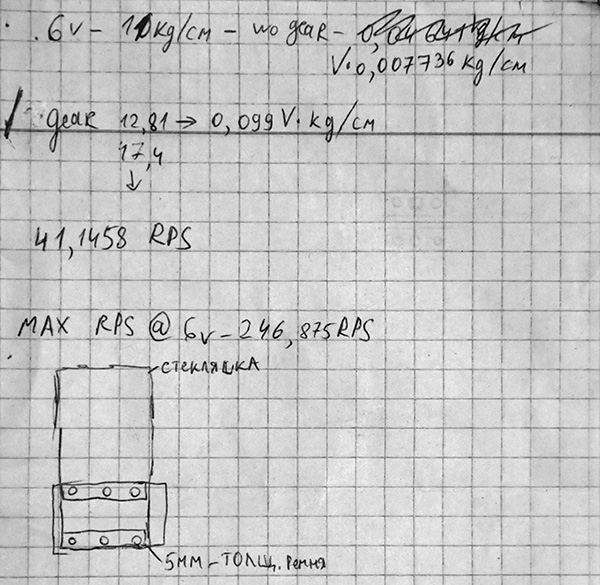 6V - 10kg/см - wo gear -
V·0,007736 kg/см
gear 12,81 → 0,099 V·kg/см
17,4
↓
41,1458 RPS
MAX RPS @ 6V - 246,875RPS
стекляшка
5мм - толщ. ремня